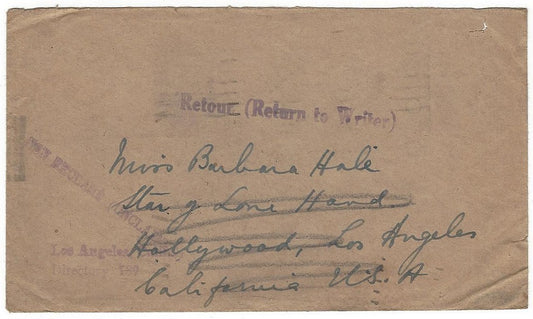 Retour (Return to Writer)
Miss Barbara Hale
Star of Lone Hand
Hollywood, Los Angeles
California U.S.A
NON RECLAMÉ
Los Angeles
Directory